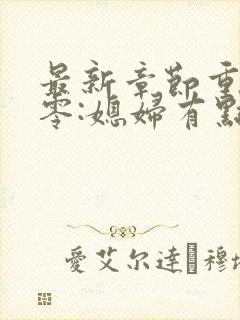 最新章節重
零:媳婦有點
愛艾尔達 穆埃